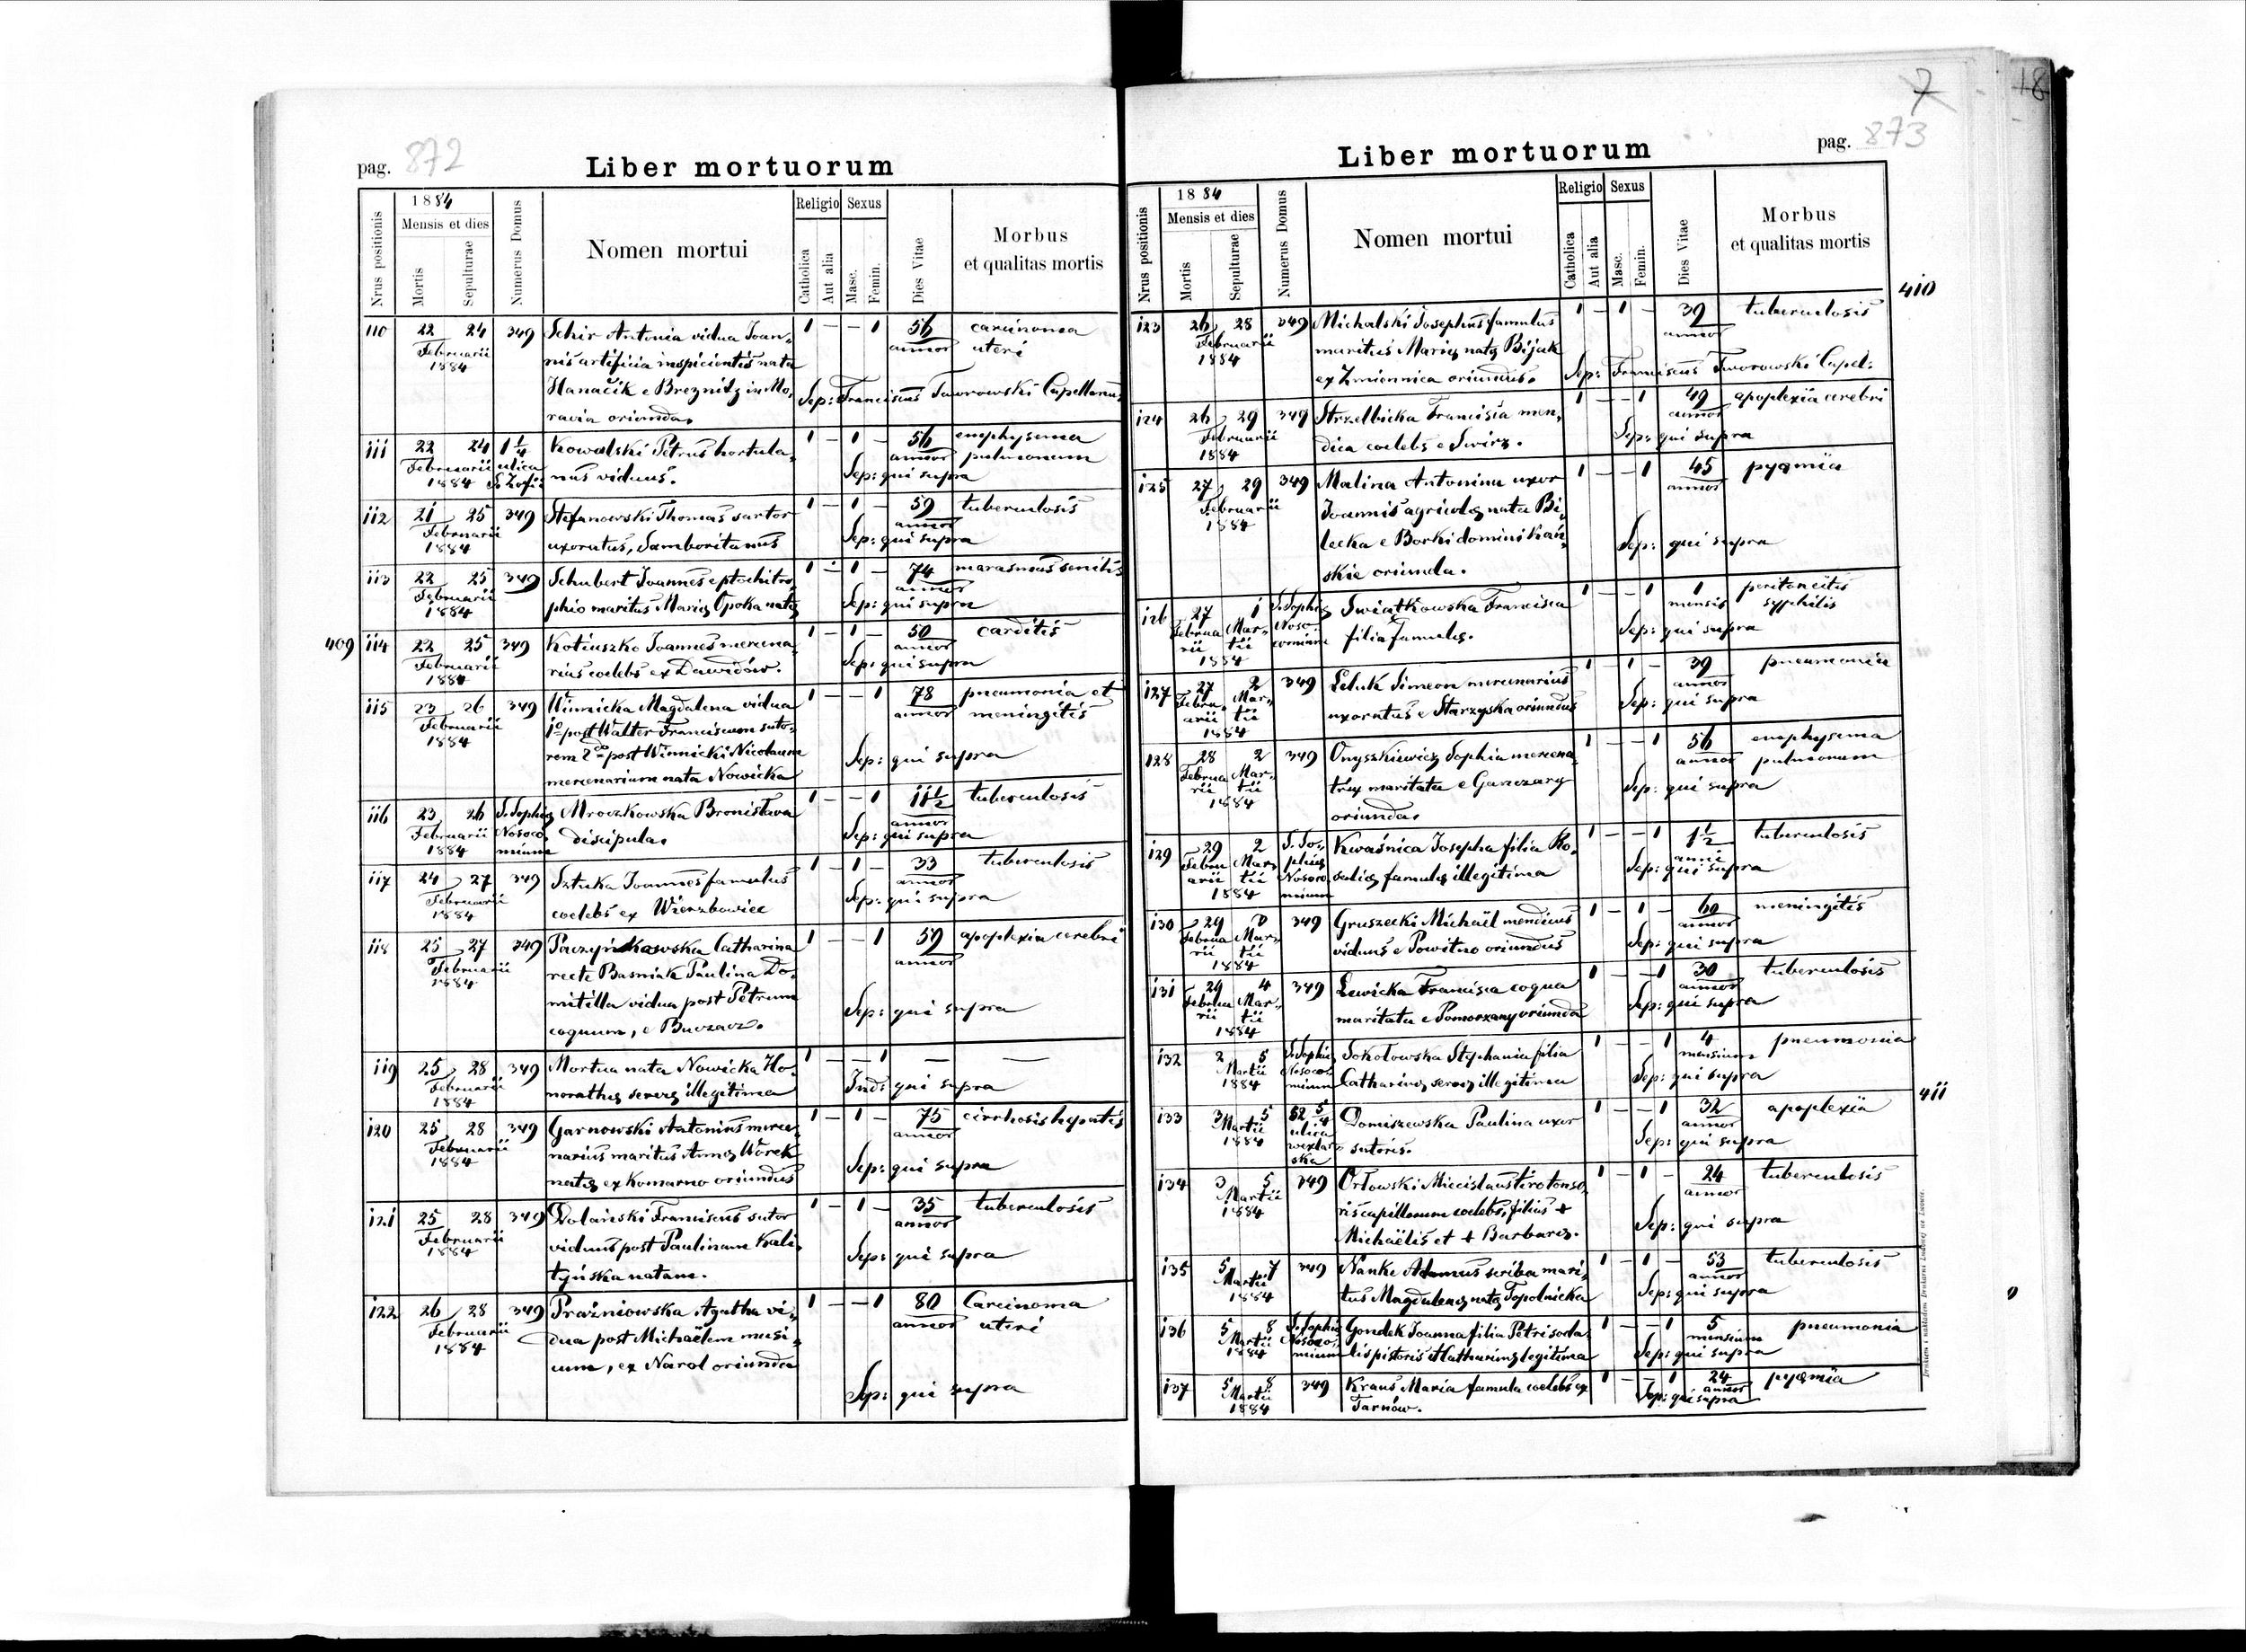 pag. 872
Liber mortuorum
1884
Mensis et dies
Nrus positionis
Mortis
Sepulturae
Numerus Domus
Nomen mortui
Religio
Catholica
Aut alia
Sexus
Masc.
Femin.
Dies Vitae
Morbus
et qualitas mortis
110 22 24 349 Schir Antonia vidua Joan- 1 — — 1 56 carcinoma
Februarii nis artificia inspicientis nata annor uteri
1884 Hanačik e Breznitz in Mo- Sep: Franciscus Tworowski Capellanus
ravia oriunda.
111 22 24 1 1/4 Kowalski Petrus hortula- 1 — 1 — 56 emphysema
Februarii ulica nus viduus. annor pulmonum
1884 S. Zofii Sep: qui supra
112 21 25 349 Stefanowski Thomas sartor 1 — 1 — 59 tuberculosis
Februarii uxoratus, Samboritanus annor
1884 Sep: qui supra
113 22 25 349 Schubert Joannes eptochotro- 1 — 1 — 74 marasmus senilis
Februarii phio maritus Mariæ Opoka natæ annor
1884 Sep: qui supra
409
114 22 25 349 Kotiuszko Joannes mercena- 1 — 1 — 50 carditis
Februarii rius coelebs ex Dawidów. annor
1884 Sep: qui supra
115 23 26 349 Winnicka Magdalena vidua 1 — — 1 78 pneumonia et
Februarii 1o post Walter Franciscum suto- annor meningitis
1884 rem 2do post Winnicki Nicolaum Sep: qui supra
mercenarium nata Nowicka
116 23 26 S. Sophiæ Mroczkowska Bronislava 1 — — 1 11 1/2 tuberculosis
Februarii Nosoco- discipula. annor
1884 mium Sep: qui supra
117 24 27 349 Sztuka Joannes famulus 1 — 1 — 33 tuberculosis
Februarii coelebs ex Wierzbowiec annor
1884 Sep: qui supra
118 25 27 349 Paczyńkowska Catharina 1 — — 1 59 apoplexia cerebri
Februarii recte Basniak Paulina Do- annor
1884 mitilla vidua post Petrum Sep: qui supra
coquum, e Buczacz.
119 25 28 349 Mortua nata Nowicka Ho- 1 — — 1 — —
Februarii norathæ servæ illegitima Ind: qui supra
1884
120 25 28 349 Garnowski Antonius merce- 1 — 1 — 75 cirrhosis hepatis
Februarii narius maritus Annæ Worek annor
1884 natæ ex Komarno oriundus Sep: qui supra
121 25 28 349 Dolański Franciscus sutor 1 — 1 — 35 tuberculosis
Februarii viduus post Paulinam Kali- annor
1884 tyńska natam. Sep: qui supra
122 26 28 349 Praźniowska Agatha vi- 1 — — 1 80 Carcinoma
Februarii dua post Michaëlem musi- annor uteri
1884 cum, ex Narol oriunda
Sep: qui supra
7
18
pag. 873
Liber mortuorum
1884
Mensis et dies
Nrus positionis
Mortis
Sepulturae
Numerus Domus
Nomen mortui
Religio
Catholica
Aut alia
Sexus
Masc.
Femin.
Dies Vitae
Morbus
et qualitas mortis
410
123 26 28 349 Michalski Josephus famulus 1 — 1 — 39 tuberculosis
Februarii maritus Mariæ natæ Bijak annor
1884 ex Zmiennica oriundus. Sep: Franciscus Tworowski Capel:
124 26 29 349 Strzelbicka Francisca men- 1 — — 1 49 apoplexia cerebri
Februarii dica coelebs e Swirz. annor
1884 Sep: qui supra
125 27 29 349 Malina Antonina uxor 1 — — 1 45 pyæmia
Februarii Joannis agricolæ nata Bi- annor
1884 lecka e Borki dominikań- Sep: qui supra
skie oriunda.
126 27 1 S. Sophiæ Swiątkowska Francisca 1 — — 1 1 peritonëitis
Februa- Mar- Noso- filia famulæ. mensis syphilis
rii tii comium Sep: qui supra
1884
127 27 2 349 Leluk Simeon mercenarius 1 — 1 — 39 pneumonia
Febru- Mar- uxoratus e Starzyska oriundus annor
arii tii Sep: qui supra
1884
128 28 2 349 Onyszkiewicz Sophia mercena- 1 — — 1 56 emphysema
Februa- Mar- trix maritata e Ganczary annor pulmonum
rii tii oriunda. Sep: qui supra
1884
129 29 2 S. So- Kwaśnica Josepha filia Ro- 1 — — 1 1 1/2 tuberculosis
Febru- Mar- phiæ saliæ famulæ illegitima anni
arii tii Nosoco- Sep: qui supra
1884 mium
130 29 2 349 Gruszecki Michaël mendicus 1 — 1 — 60 meningitis
Februa- Mar- viduus e Powitno oriundus annor
rii tii Sep: qui supra
1884
131 29 4 349 Lewicka Francisca coqua 1 — — 1 30 tuberculosis
Februa- Mar- maritata e Pomorzany oriunda annor
rii tii Sep: qui supra
1884
132 2 5 S. Sophiæ Sokołowska Stephania filia 1 — — 1 4 pneumonia
Martii Nosoco- Catharinæ servæ illegitima mensium
1884 mium Sep: qui supra
411
133 3 5 52 5/4 Domiszewska Paulina uxor 1 — — 1 32 apoplexia
Martii ulica sutoris. annor
1884 wexlar- Sep: qui supra
ska
134 3 5 349 Orłowski Miecislaus tiro tonso- 1 — 1 — 24 tuberculosis
Martii ris capillorum coelebs, filius + annor
1884 Michaëlis et + Barbaræ. Sep: qui supra
135 5 7 349 Nanke Adamus scriba mari- 1 — 1 — 53 tuberculosis
Martii tus Magdalenæ natæ Topolnicka annor
1884 Sep: qui supra
136 5 8 S. Sophiæ Gondek Joanna filia Petri soda- 1 — — 1 5 pneumonia
Martii Nosoco- lis pistoris et Catharinæ legitima mensium
1884 mium Sep: qui supra
137 5 8 349 Kraus Maria famula coelebs ex 1 — — 1 24 pyæmia
Martii Tarnów. annor
1884 Sep: qui supra